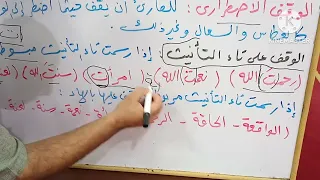 الوقف الاضطراري : للقارئ أن يقف حيثما اضطر إلى
كالعطاس والسعال وغير ذلك .
الوقف على تاء التأنيث : إذا رسمت تاء التأنيث مبسوطة
(رحمت الله) (نعمت الله) (امرأت) (سنت الله)
إذا رسمت تاء التأنيث عليها بالهاء :
(الواقعة - الحاقة - نعمة - سنة -